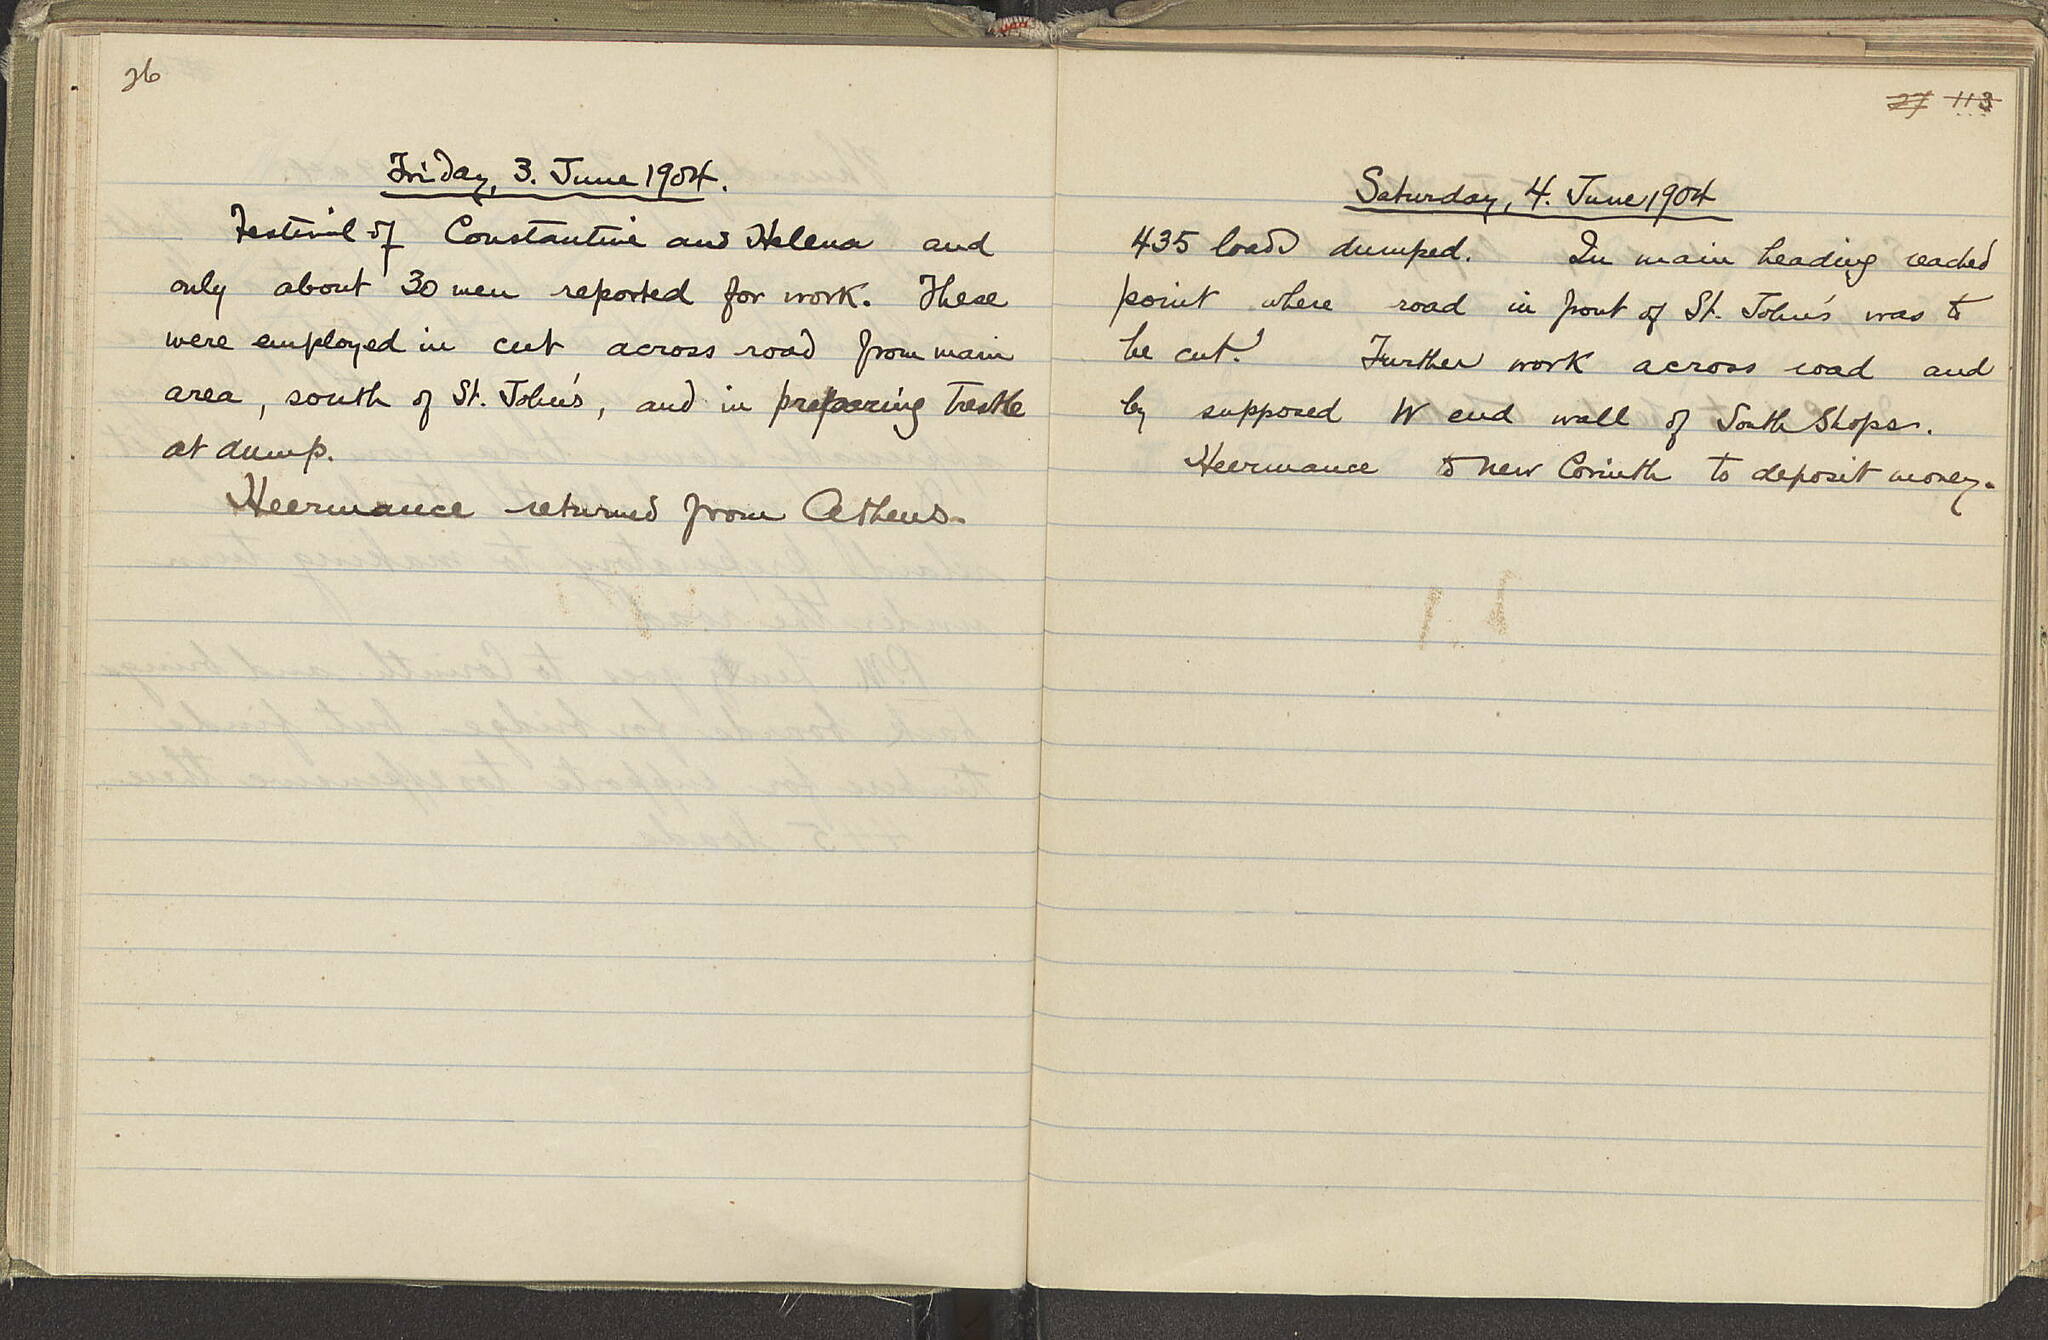 26
Friday, 3. June 1904.
Festival of Constantine and Helena and
only about 30 men reported for work. These
were employed in cut across road from main
area, south of St. John's, and in preparing trestle
at dump.
Heermance returned from Athens.
27 113
Saturday, 4. June 1904
435 loads dumped. In main heading reached
point where road in front of St. John's was to
be cut. Further work across road and
by supposed W end wall of South Shops.
Heermance to New Corinth to deposit money.